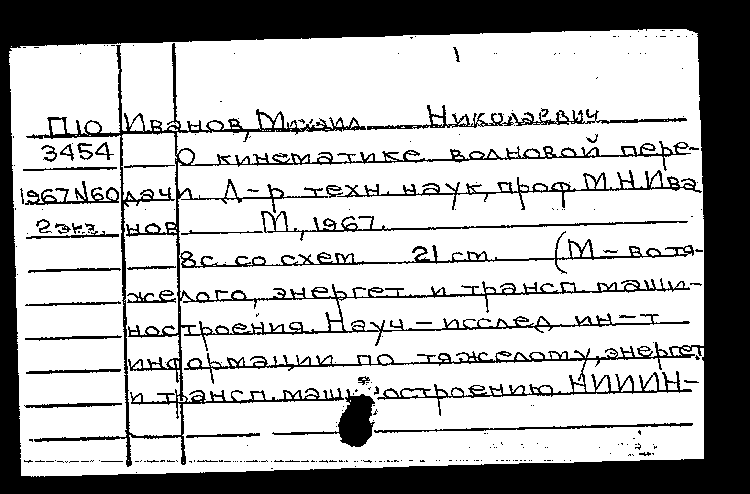 П10 Иванов, Михаил Николаевич
3454 О кинематике волновой пере-
1967 N60 дачи. Д-р техн. наук, проф. М.Н.Ива
2 экз. нов. М., 1967.
8 с. со схем. 21 см. (М-во тя-
желого, энергет. и трансп. маши-
ностроения. Науч.-исслед. ин-т
информации по тяжелому, энергет.
и трансп. машиностроению. НИИИН-